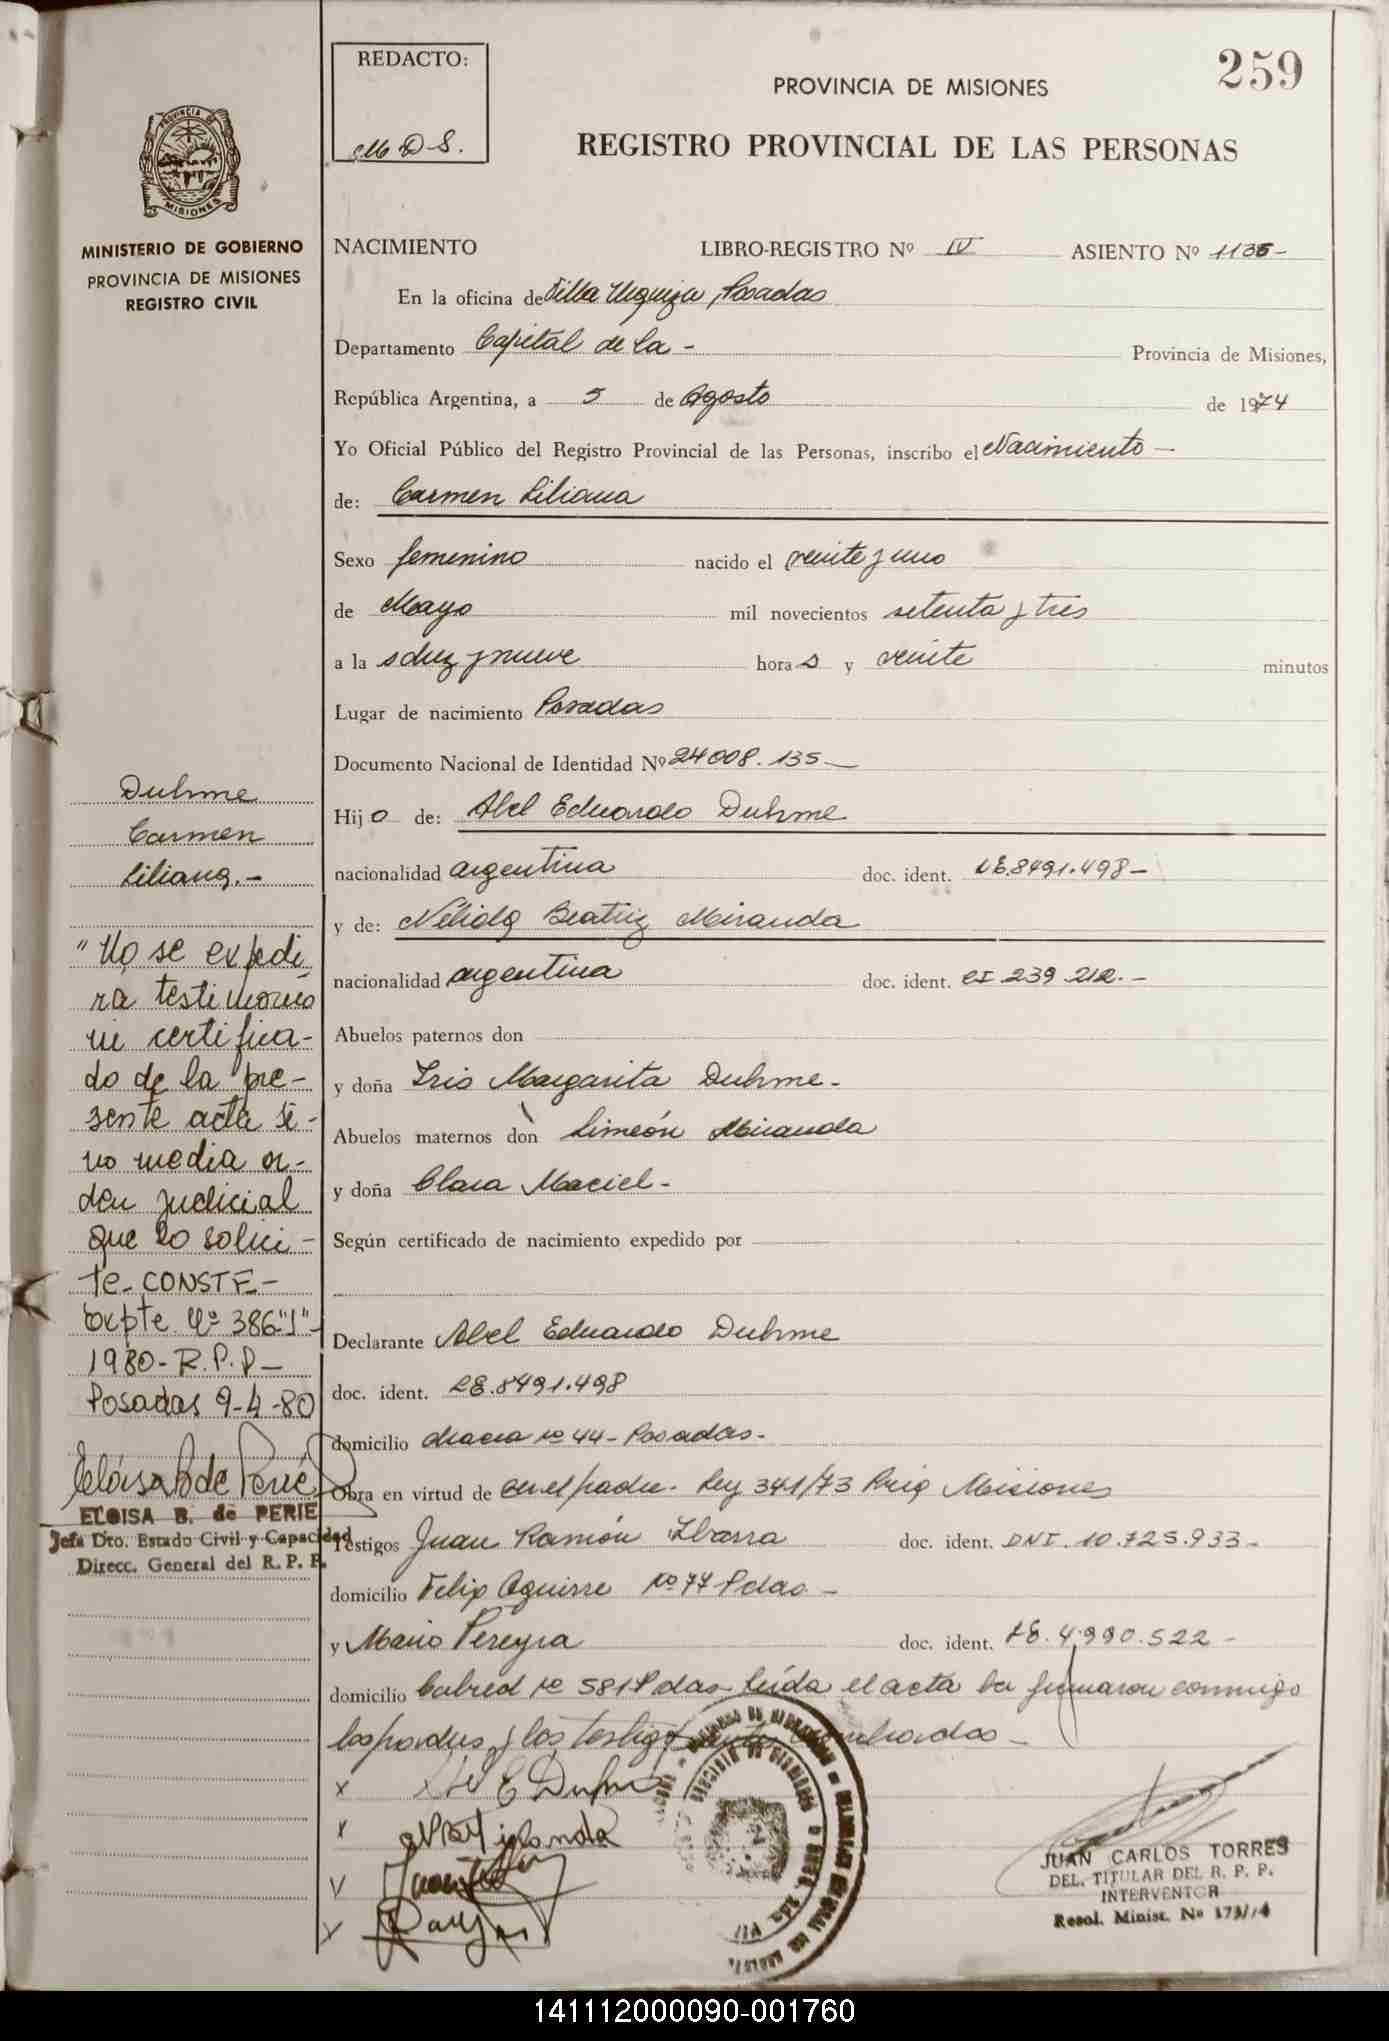 259
REDACTO:
M D S.
PROVINCIA DE MISIONES
REGISTRO PROVINCIAL DE LAS PERSONAS
PROVINCIA DE
MISIONES
MINISTERIO DE GOBIERNO
PROVINCIA DE MISIONES
REGISTRO CIVIL
NACIMIENTO LIBRO-REGISTRO Nº IV ASIENTO Nº 1135-
En la oficina de Villa Urquiza, Posadas
Departamento Capital de la - Provincia de Misiones,
República Argentina, a 5 de Agosto de 1974
Yo Oficial Público del Registro Provincial de las Personas, inscribo el Nacimiento —
de: Carmen Liliana
Sexo femenino nacido el veinte y uno
de Mayo mil novecientos setenta y tres
a la s diez y nueve hora s y veinte minutos
Lugar de nacimiento Posadas
Documento Nacional de Identidad Nº 24008.135—
Hij o de: Abel Eduardo Duhme
nacionalidad argentina doc. ident. LE.8491.498—
y de: Nélida Beatriz Miranda
nacionalidad argentina doc. ident. CI 239 212.-
Abuelos paternos don
y doña Iris Margarita Duhme-
Abuelos maternos don Simeón Miranda
y doña Clara Maciel-
Según certificado de nacimiento expedido por
Declarante Abel Eduardo Duhme
doc. ident. LE.8491.498
domicilio chacra nº 44- Posadas-
Obra en virtud de ser el padre. Ley 341/73 Misiones
Testigos Juan Ramón Ibarra doc. ident. DNI. 10.725.933-
domicilio Felix Aguirre Nº 77 Pdas -
y Mario Pereyra doc. ident. LE.4.990.522-
domicilio Cabred nº 581 Pdas- Leída el acta la firmaron conmigo
los padres y los testigos antes nombrados —
x Abel E Duhme
x N B Miranda
Duhme
Carmen
Liliana.-
"No se expedi
rá testimonio
ni certifica-
do de la pre-
sente acta si-
no media or-
den judicial
que lo solici-
te- CONSTE-
Expte Nº 386"J"-
1980- R.P.P—
Posadas 9-4-80
Eloisa B de Perié
ELOISA B. de PERIE
Jefa Dto. Estado Civil y Capacidad
Direcc. General del R. P. P.
JUAN CARLOS TORRES
DEL. TITULAR DEL R. P. P.
INTERVENTOR
Resol. Minist. Nº 173/74
141112000090-001760